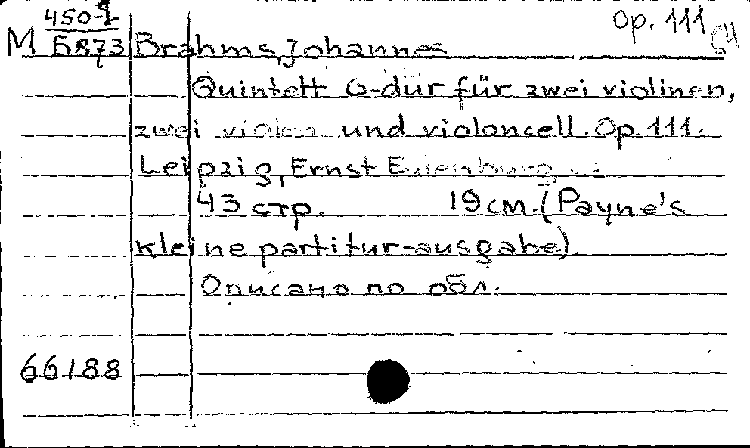 450-1 Op. 111
М Б873 Brahms, Johannes
Quintett G-dur für zwei violinen,
zwei violen und violoncell. Op. 111.
Leipzig, Ernst Eulenburg
43 стр. 19 см. (Payne's
kleine partitur-ausgabe)
Описано по обл.
66188